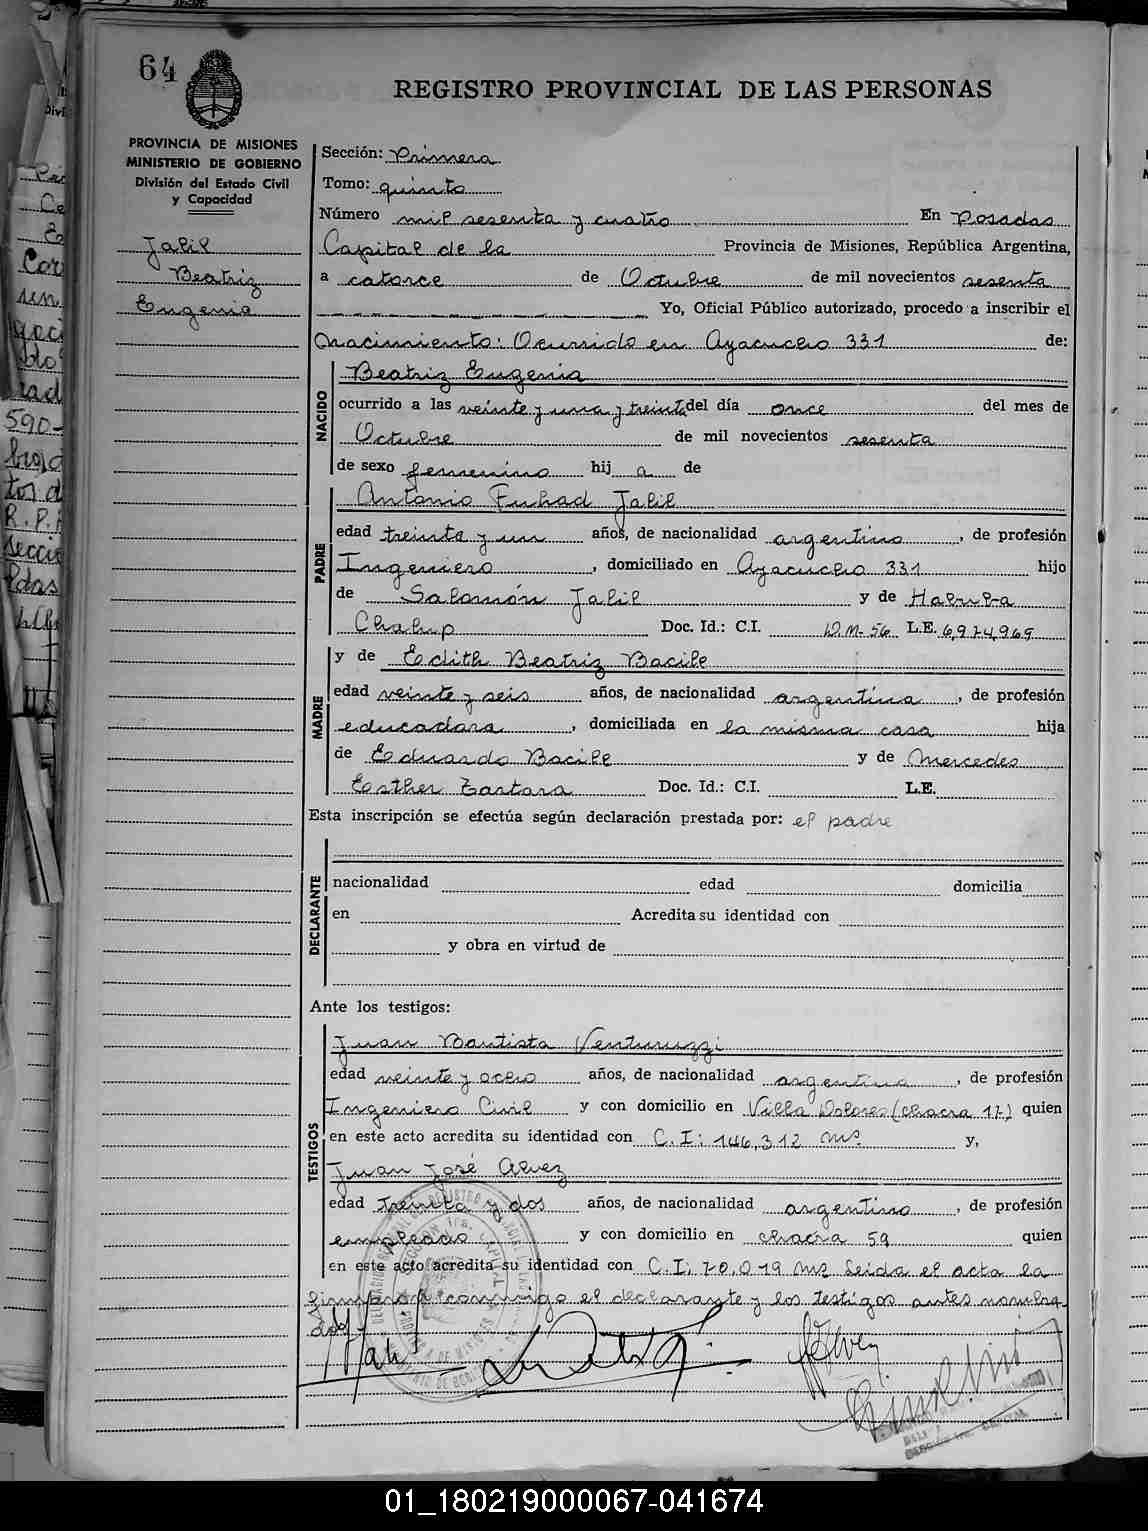 64
REGISTRO PROVINCIAL DE LAS PERSONAS
PROVINCIA DE MISIONES
MINISTERIO DE GOBIERNO
División del Estado Civil
y Capacidad
Jalil
Beatriz
Eugenia
Sección: Primera
Tomo: quinto
Número mil sesenta y cuatro En Posadas
Capital de la Provincia de Misiones, República Argentina,
a catorce de Octubre de mil novecientos sesenta
Yo, Oficial Público autorizado, procedo a inscribir el
Nacimiento: Ocurrido en Ayacucho 331 de:
NACIDO
Beatriz Eugenia
ocurrido a las veinte y una y treinta del día once del mes de
Octubre de mil novecientos sesenta
de sexo femenino hij a de
PADRE
Antonio Fuhad Jalil
edad treinta y un años, de nacionalidad argentino, de profesión
Ingeniero, domiciliado en Ayacucho 331 hijo
de Salomón Jalil y de Habuba
Chahup Doc. Id.: C.I. D.M-56 L.E. 6,974,969
MADRE
y de Edith Beatriz Bacile
edad veinte y seis años, de nacionalidad argentina, de profesión
educadora, domiciliada en la misma casa hija
de Eduardo Bacile y de Mercedes
Esther Zartara Doc. Id.: C.I. L.E.
Esta inscripción se efectúa según declaración prestada por: el padre
DECLARANTE
nacionalidad edad domicilia
en Acredita su identidad con
y obra en virtud de
Ante los testigos:
TESTIGOS
Juan Bautista Venturuzzi
edad veinte y ocho años, de nacionalidad argentina, de profesión
Ingeniero Civil y con domicilio en Villa Dolores (chacra 17) quien
en este acto acredita su identidad con C.I: 146,312 Mns. y,
Juan José Alvez
edad treinta y dos años, de nacionalidad argentino, de profesión
empleado y con domicilio en chacra 59 quien
en este acto acredita su identidad con C.I. 70,019 Mns Leida el acta la
firmaron conmigo el declarante y los testigos antes nombra
dos
01_180219000067-041674